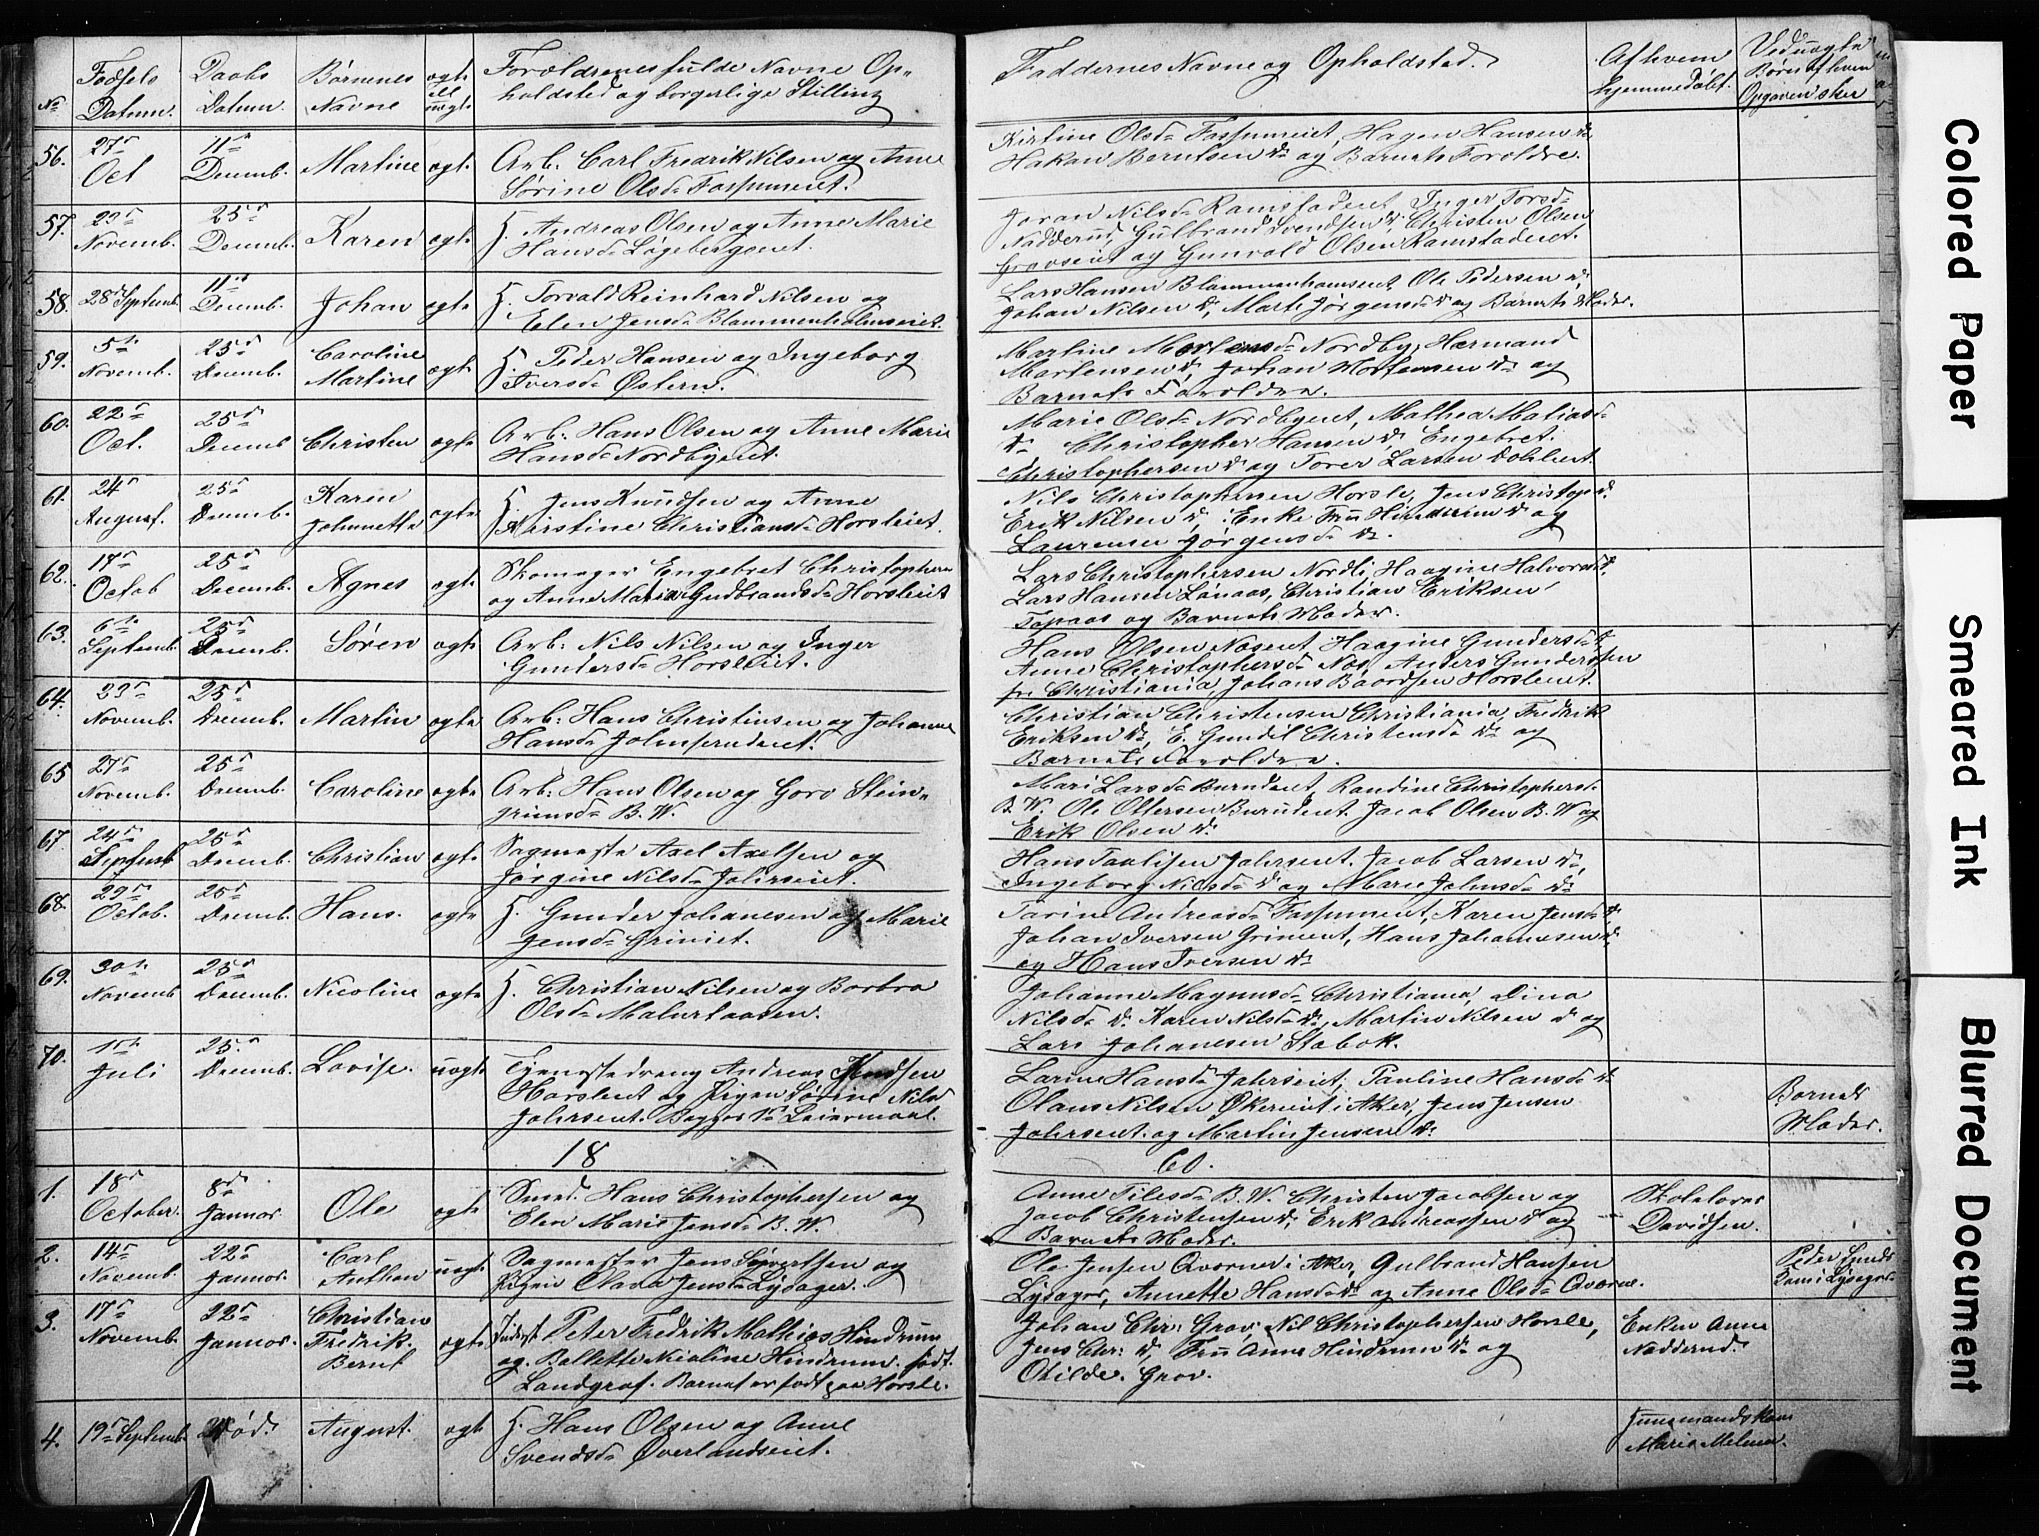 No Fødsels Datum. Daabs Datum. Børnenes Navne ægte ell uægte Forældrenes fulde Navne Op-
holdsted og borgerlige Stilling
Faddernes Navne og Opholdsted. Af hvem hjemmedøbt. Ved uægte Børn af hvem Opgaven sker
56. 27de Oct 11te Decemb. Martine ægt. Arb. Carl Fredrik Nilsen og Anne
Sørine Olsd.
Kirstine Olsd. Hagen Hansen do
Hakon Berntsen do og Barnets Forældre.
57. 23de Novemb. 25de Decemb. Karen ægte H. Andreas Olsen og Anne Marie
Hansd. Løgebergeiet.
Joran Nilsd. Ramstadeiet Inger Torsd.
Nadderud, Gulbrand Svendsen do, Christen Olsen
og Gunvald Olsen Ramstadeiet.
58. 28de Septemb. 11te Decemb. Johan ægte H. Torvald Reinhard Nilsen og
Elen Jensd. Blommenholmseiet.
Lars Hansen Blommenhomseiet, Ole Pedersen do,
Johan Nilsen do, Marte Jørgensd. do og Barnets Moder.
59. 5te Novemb. 25de Decemb. Caroline Martine ægte H. Peder Hansen og Ingeborg
Iversd. Østern.
Martine Mortensd. Nordby, Hermand
Mortensen do, Johan Mortensen do og
Barnets Forældre.
60. 22de Oct. 25de Decemb Christen ægte Arb: Hans Olsen og Anne Marie
Hansd. Nordbyeiet.
Marie Olsd. Nordbyeiet, Mathea Matiasd.
do Christopher Hansen do, Engebret
Christophersen do og Torer Larsen
61. 24de August. 25de Decemb. Karen Johannette ægte H. Jens Knudsen og Anne
Kirstine Christiansd. Horsleiet.
Nils Christophersen Horsle, Jens Christop do
Erik Nilsen do, Enke Fru Hindrum do og
Laurense Jørgensd. do.
62. 17de Octob 25de Decemb. Agnes ægte Skomager Engebret Christophersen
og Anne Maria Gudbrandsd. Horsleiet
Lars Christophersen Nordli, Haagine Halvorsd. do,
Lars Hansen Lønaas, Christian Eriksen
Topaas og Barnets Moder.
63. 6te Septemb. 25de Decemb. Søren ægte Arb: Nils Nilsen og Inger
Gundersd. Horsleiet.
Hans Olsen Næseiet, Haagine Gundersd. do,
Anne Christophersd. Næs, Anders Gundersen
fr Christiania, Johans Baardsen Horsleiet.
64. 23de Novemb. 25de Decemb. Martin ægte Arb: Hans Christensen og Johanne
Hansd. Johnsrudeiet.
Christian Christensen Christiania, Fredrik
Eriksen do, E. Gundil Christensd. do og
Barnets Forældre.
65 27de Novemb. 25de Decemb. Caroline ægte Arb: Hans Olsen og Goro Stein-
grimsd. B. W.
Mari Larsd. Burudeiet, Randine Christophersd.
B. W. Ole Ottersen Burudeiet. Jacob Olsen B. W og
Erik Olsen do
67 24de Septemb 25de Decemb. Christian ægte Sagmester Axel Axelsen og
Jørgine Nilsd. Jahrseiet.
Hans Paulsen Jahrseiet. Jacob Larsen do,
Ingeborg Nilsd. do og Marie Johnsd. do
68. 22de Octob. 25de Decemb. Hans. ægte H. Gunder Johanesen og Marie
Jensd. Grinieiet.
Torine Andreasd. Karen Jensd. do
Johan Iversen Grinieiet, Hans Johannesen do
og Hans Iversen do
69. 30te Novemb 25de Decemb. Nicoline ægte H. Christian Nilsen og Barbra
Olsd. Malurtaasen.
Johanne Magnusd. Christiania, Dina
Nilsd. do Karen Nilsd. do, Martin Nilsen do og
Lars Johanesen Stabæk.
70. 1ste Juli 25de Decemb. Lovise. uægte Tjenestedreng Andreas Knudsen
Horsleiet og Pigen Sørine Nilsd
Jahrseiet. Begges 1ste Leiermaal.
Larine Hansd. Jahrseiet, Pauline Hansd. do
Olaus Nilsen Økerneiet i Aker, Jens Jensen
Jahrseiet og Martin Jensen do.
Barnets Moder.
18 60.
1. 18de October. 8de Januar. Ole ægte Smed. Hans Christophersen og
Elen Marie Jensd. B. W.
Anne Tilesd. B. W. Christen Jacobsen og
Jacob Christensen do, Erik Andreassen do og
Barnets Moder.
Skolelærer Davidsen.
2. 14de Novemb. 22de Januar. Carl Anthon uægt Sagmester Jens Sivertsen og
Pigen Olava Jensd. Lysager.
Ole Jensen Qværner i Aker, Gulbrand Hansen
Lysager, Annette Hansd. do og Anne Olsd. Qværne.
Peder Lysager
3. 17de Novemb. 22de Januar. Christian Fredrik Bernt ægte Inderst Peter Fredrik Mathias Hindrum
og Bollette Nicoline Hindrum født
Landgraf. Barnet er født paa Horsle.
Johan Chr: Grøv, Nil Christophersen Horsle,
Jens Chr: do, Fru Anne Hindrum do og
Otilde Grøv.
Enken Anne Nadderud.
4. 19de Septemb. Død. August. ægt. H. Hans Olsen og Anne
Svendsd. Øverlandseiet.
Marie
Colored Paper
Smeared Ink
Blurred Document